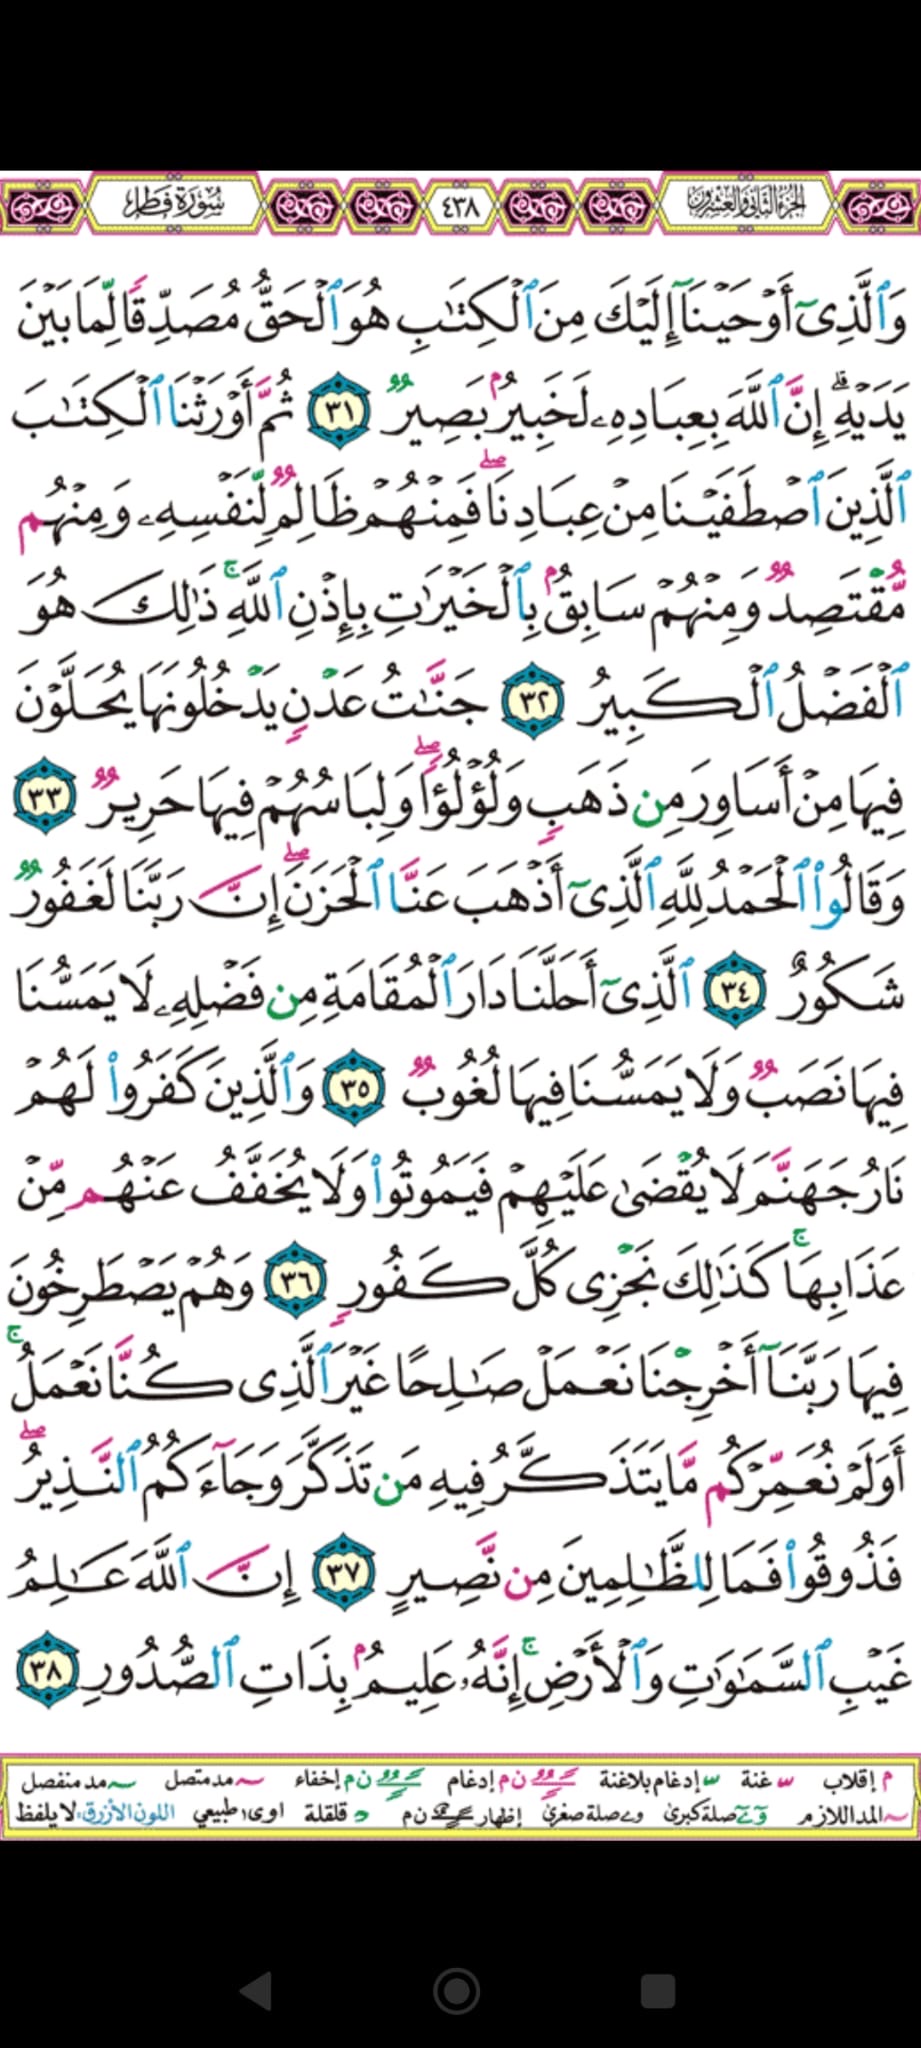 الجزء الثاني والعشرون ٤٣٨ سُورَةُ فَاطِرٍ
وَٱلَّذِىٓ أَوۡحَيۡنَآ إِلَيۡكَ مِنَ ٱلۡكِتَٰبِ هُوَ ٱلۡحَقُّ مُصَدِّقٗا لِّمَا بَيۡنَ
يَدَيۡهِۗ إِنَّ ٱللَّهَ بِعِبَادِهِۦ لَخَبِيرُۢ بَصِيرٞ ٣١ ثُمَّ أَوۡرَثۡنَا ٱلۡكِتَٰبَ
ٱلَّذِينَ ٱصۡطَفَيۡنَا مِنۡ عِبَادِنَاۖ فَمِنۡهُمۡ ظَالِمٞ لِّنَفۡسِهِۦ وَمِنۡهُم
مُّقۡتَصِدٞ وَمِنۡهُمۡ سَابِقُۢ بِٱلۡخَيۡرَٰتِ بِإِذۡنِ ٱللَّهِۚ ذَٰلِكَ هُوَ
ٱلۡفَضۡلُ ٱلۡكَبِيرُ ٣٢ جَنَّٰتُ عَدۡنٖ يَدۡخُلُونَهَا يُحَلَّوۡنَ
فِيهَا مِنۡ أَسَاوِرَ مِن ذَهَبٖ وَلُؤۡلُؤٗاۖ وَلِبَاسُهُمۡ فِيهَا حَرِيرٞ ٣٣
وَقَالُواْ ٱلۡحَمۡدُ لِلَّهِ ٱلَّذِىٓ أَذۡهَبَ عَنَّا ٱلۡحَزَنَۖ إِنَّ رَبَّنَا لَغَفُورٞ
شَكُورٌ ٣٤ ٱلَّذِىٓ أَحَلَّنَا دَارَ ٱلۡمُقَامَةِ مِن فَضۡلِهِۦ لَا يَمَسُّنَا
فِيهَا نَصَبٞ وَلَا يَمَسُّنَا فِيهَا لُغُوبٞ ٣٥ وَٱلَّذِينَ كَفَرُواْ لَهُمۡ
نَارُ جَهَنَّمَ لَا يُقۡضَىٰ عَلَيۡهِمۡ فَيَمُوتُواْ وَلَا يُخَفَّفُ عَنۡهُم مِّنۡ
عَذَابِهَاۚ كَذَٰلِكَ نَجۡزِى كُلَّ كَفُورٖ ٣٦ وَهُمۡ يَصۡطَرِخُونَ
فِيهَا رَبَّنَآ أَخۡرِجۡنَا نَعۡمَلۡ صَٰلِحًا غَيۡرَ ٱلَّذِى كُنَّا نَعۡمَلُۚ
أَوَلَمۡ نُعَمِّرۡكُم مَّا يَتَذَكَّرُ فِيهِ مَن تَذَكَّرَ وَجَآءَكُمُ ٱلنَّذِيرُۖ
فَذُوقُواْ فَمَا لِلظَّٰلِمِينَ مِن نَّصِيرٍ ٣٧ إِنَّ ٱللَّهَ عَٰلِمُ
غَيۡبِ ٱلسَّمَٰوَٰتِ وَٱلۡأَرۡضِۚ إِنَّهُۥ عَلِيمُۢ بِذَاتِ ٱلصُّدُورِ ٣٨
م إقلاب غنة إدغام بلاغنة ن م إدغام ن م إخفاء مد متصل مد منفصل
المد اللازم صلة كبرى صلة صغرى إظهار ن م قلقلة اوى طبيعي اللون الأزرق لا يلفظ